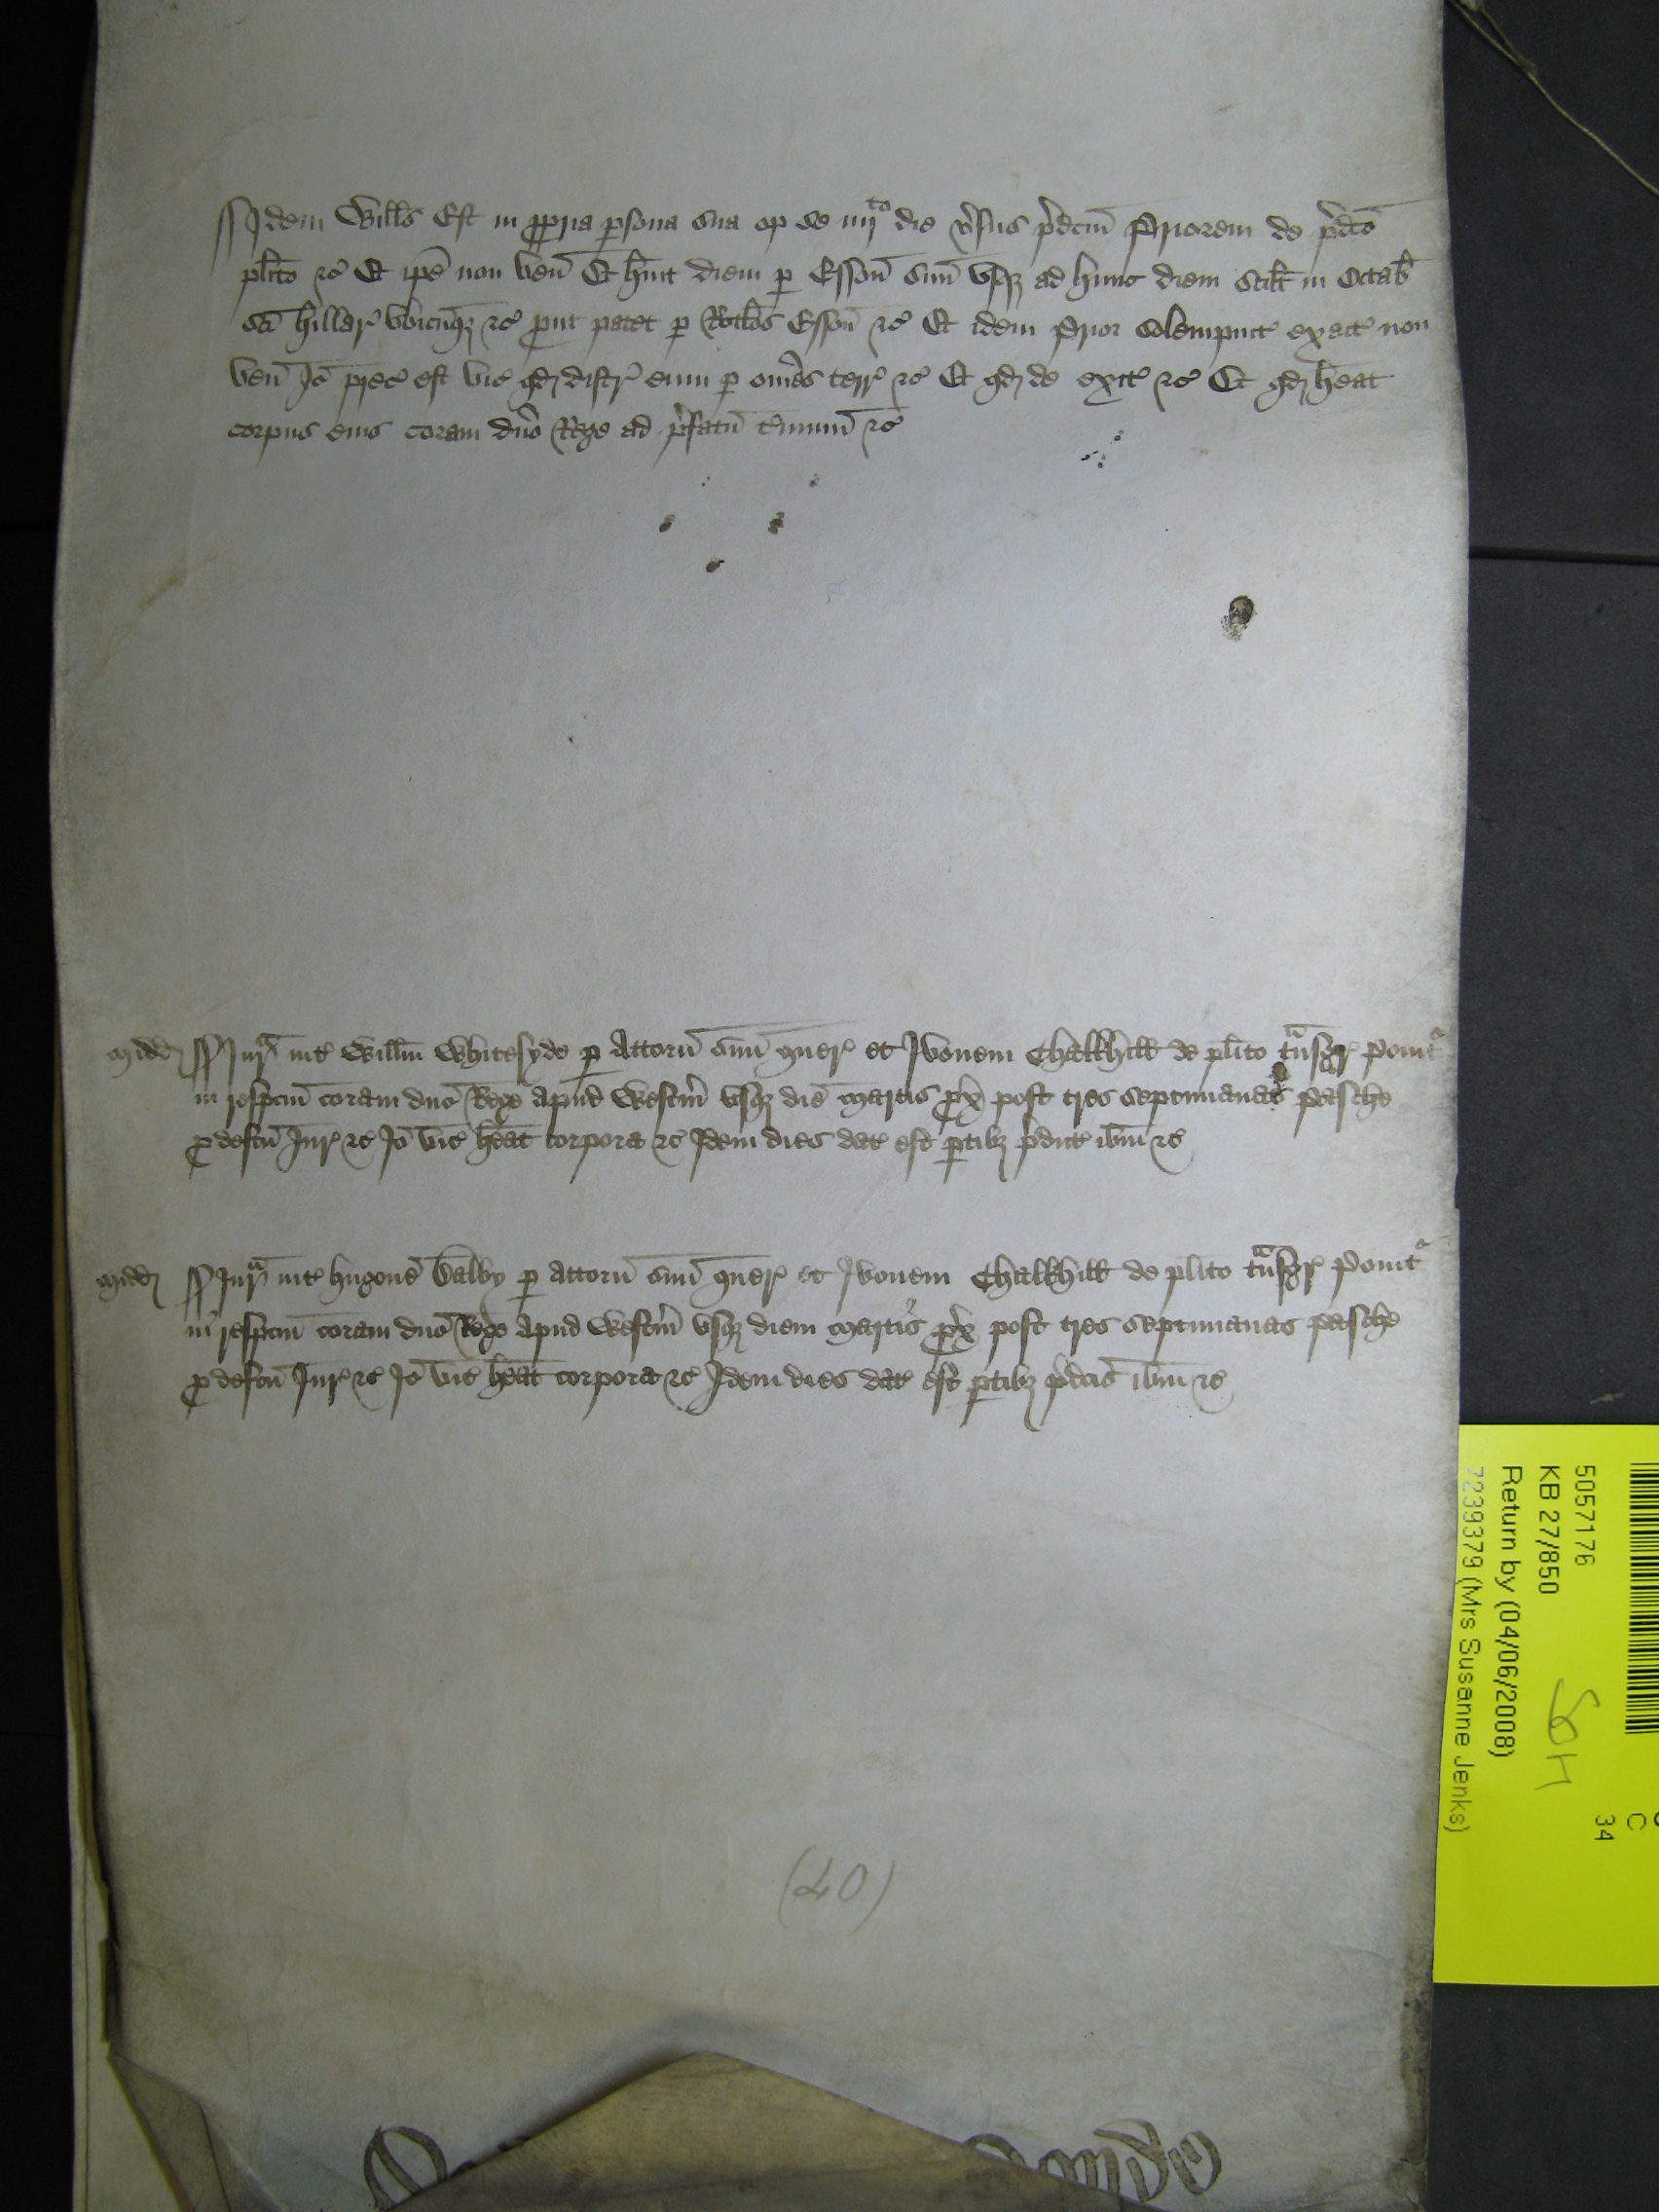 Idem Willms Est in ppria psona sua op se iiijto die vsus pdcm Priorem de pdco
plito &c Et ipe non ven Et huit diem p Esson sum usq ad hunc diem scilt in Octab
sci hillar ubicumq &c put patet p Rotlos Esson &c Et idem Prior solempnit exact non
ven Io prec est vic qd distr eum p omes terr &c Et qd de exit &c Et qd heat
corpus eius coram dno Rege ad pfatu tminum &c
Midd Jura int Willm Whitesyde p Attorn sum quer et Ivonem Chalkhill de plito tnsgr ponit
in respcm coram dno Rege apud Westm usq die martis px post tres septimanas pasche
p defcu Jur &c Io vic heat corpora &c Idem dies dat est ptibz pdict ibm &c
Midd Jura int hugone Balby p attorn sum quer et Ivonem Chalkhill de plito tnsgr ponit
in respcm coram dno Rege apud Westm usq diem martis px post tres septimanas pasche
p defcu Jur &c Io vic heat corpora &c Idem dies dat est ptibz pdcis ibm &c
(40)
5057176
KB 27/850
Return by (04/06/2008)
7239379 (Mrs Susanne Jenks)
34
C